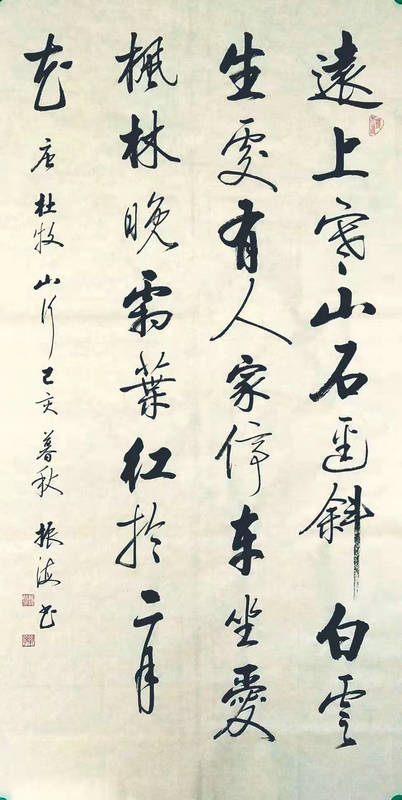 遠上寒山石逕斜白雲
生處有人家停車坐愛
楓林晚霜葉紅於二月
花
唐杜牧山行己亥暮秋振海书